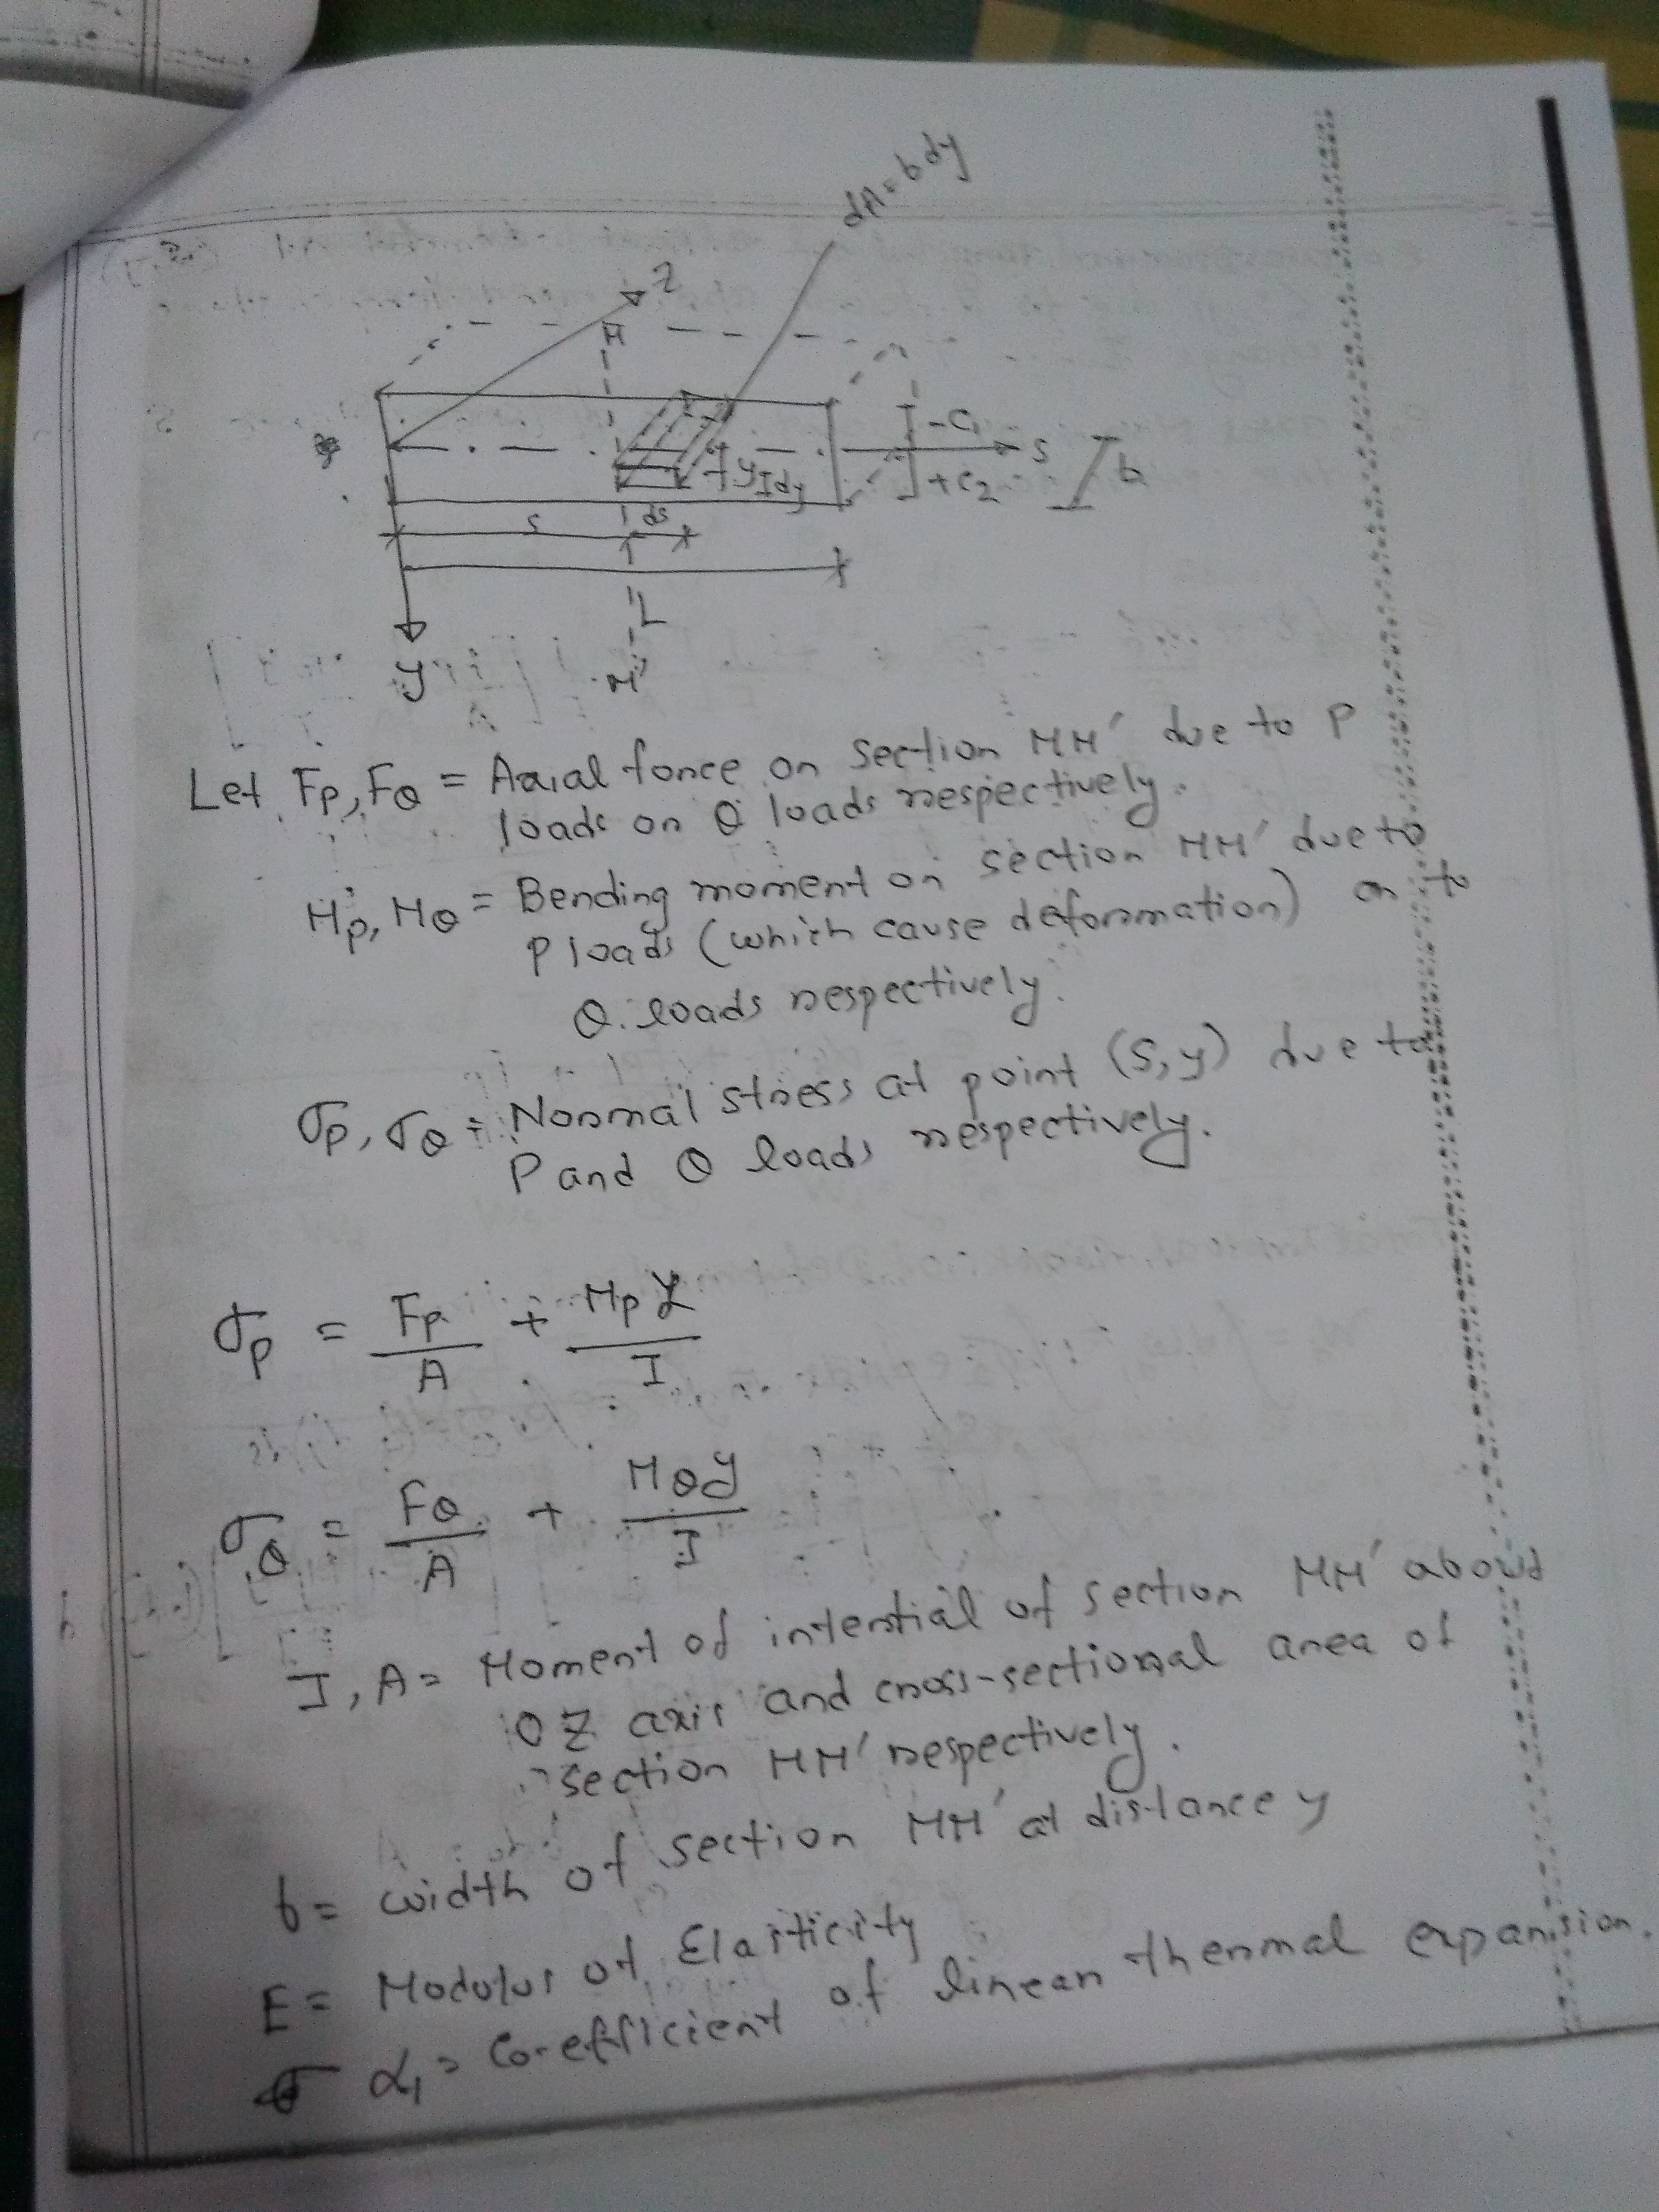 dA = b dy
Z
M
-C1
S
b
y
dy
+C2
S
ds
L
y
M'
Let Fp, FQ = Axial force on section MM' due to P
loads or Q loads respectively.
Mp, MQ = Bending moment on section MM' due to
P loads (which cause deformation) or to
Q loads respectively.
σp, σQ = Normal stress at point (S, y) due to
P and Q loads respectively.
σp = Fp/A + Mp y/I
σQ = FQ/A + MQ y/I
I, A = Moment of intertial of section MM' about
OZ axis and cross-sectional area of
section MM' respectively.
b = width of section MM' at distance y
E = Modulus of Elasticity
α1 = Co-efficient of linear thermal expansion.